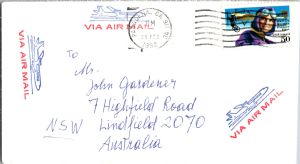 VIA AIR MAIL
PM
1992
50
VIA AIR MAIL
To
Mr.
John Gardener
7 Highfield Road
NSW Lindfield 2070
Australia
VIA AIR MAIL